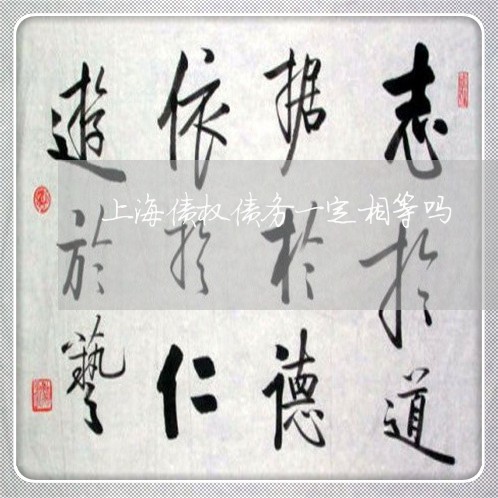 志於道
据於德
依於仁
遊於藝
上海债权债务一定相等吗